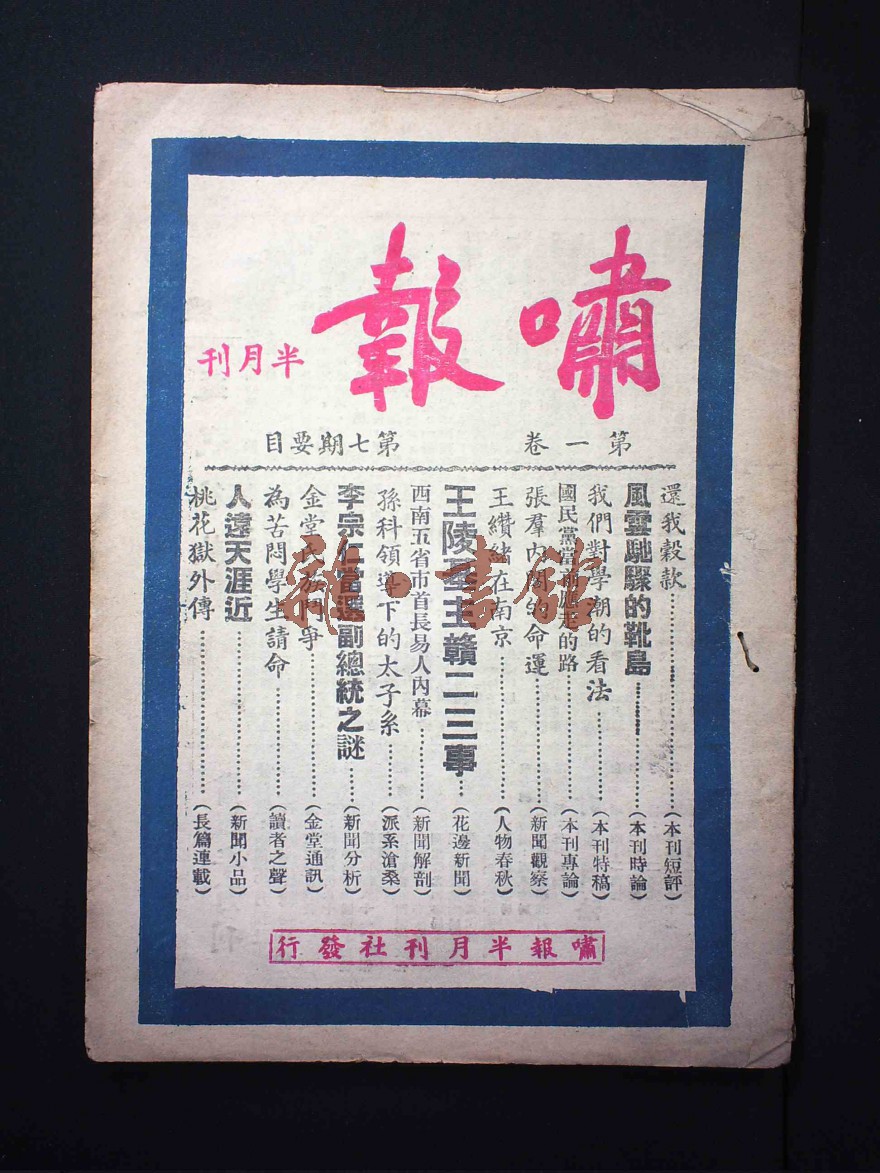 嘯報
半月刊
第一卷 第七期要目
還我穀款……(本刊短評)
風雲馳驟的靴島……(本刊時論)
我們對學潮的看法……(本刊特稿)
國民黨當前應走的路……(本刊專論)
張羣內閣的命運……(新聞觀察)
王纘緒在南京……(人物春秋)
王陵基主贛二三事…(花邊新聞)
西南五省市首長易人內幕……(新聞解剖)
孫科領導下的太子系……(派系滄桑)
李宗仁當選副總統之謎……(新聞分析)
金堂民族鬥爭……(金堂通訊)
為苦悶學生請命……(讀者之聲)
人遠天涯近……(新聞小品)
桃花獄外傳……(長篇連載)
嘯報半月刊社發行
雜·書館